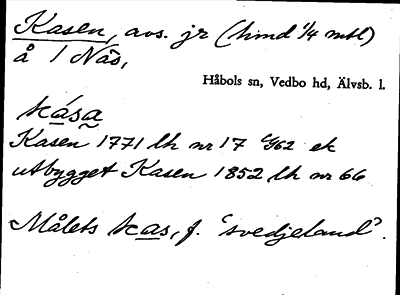 Kasen, avs. jr (hmd ¼ mtl)
å 1 Näs,
Håbols sn, Vedbo hd, Älvsb. l.
kása
Kasen 1771 lh nr 17 ek
utbygget Kasen 1852 lh nr 66
Målets kas, f. 'svedjeland'.